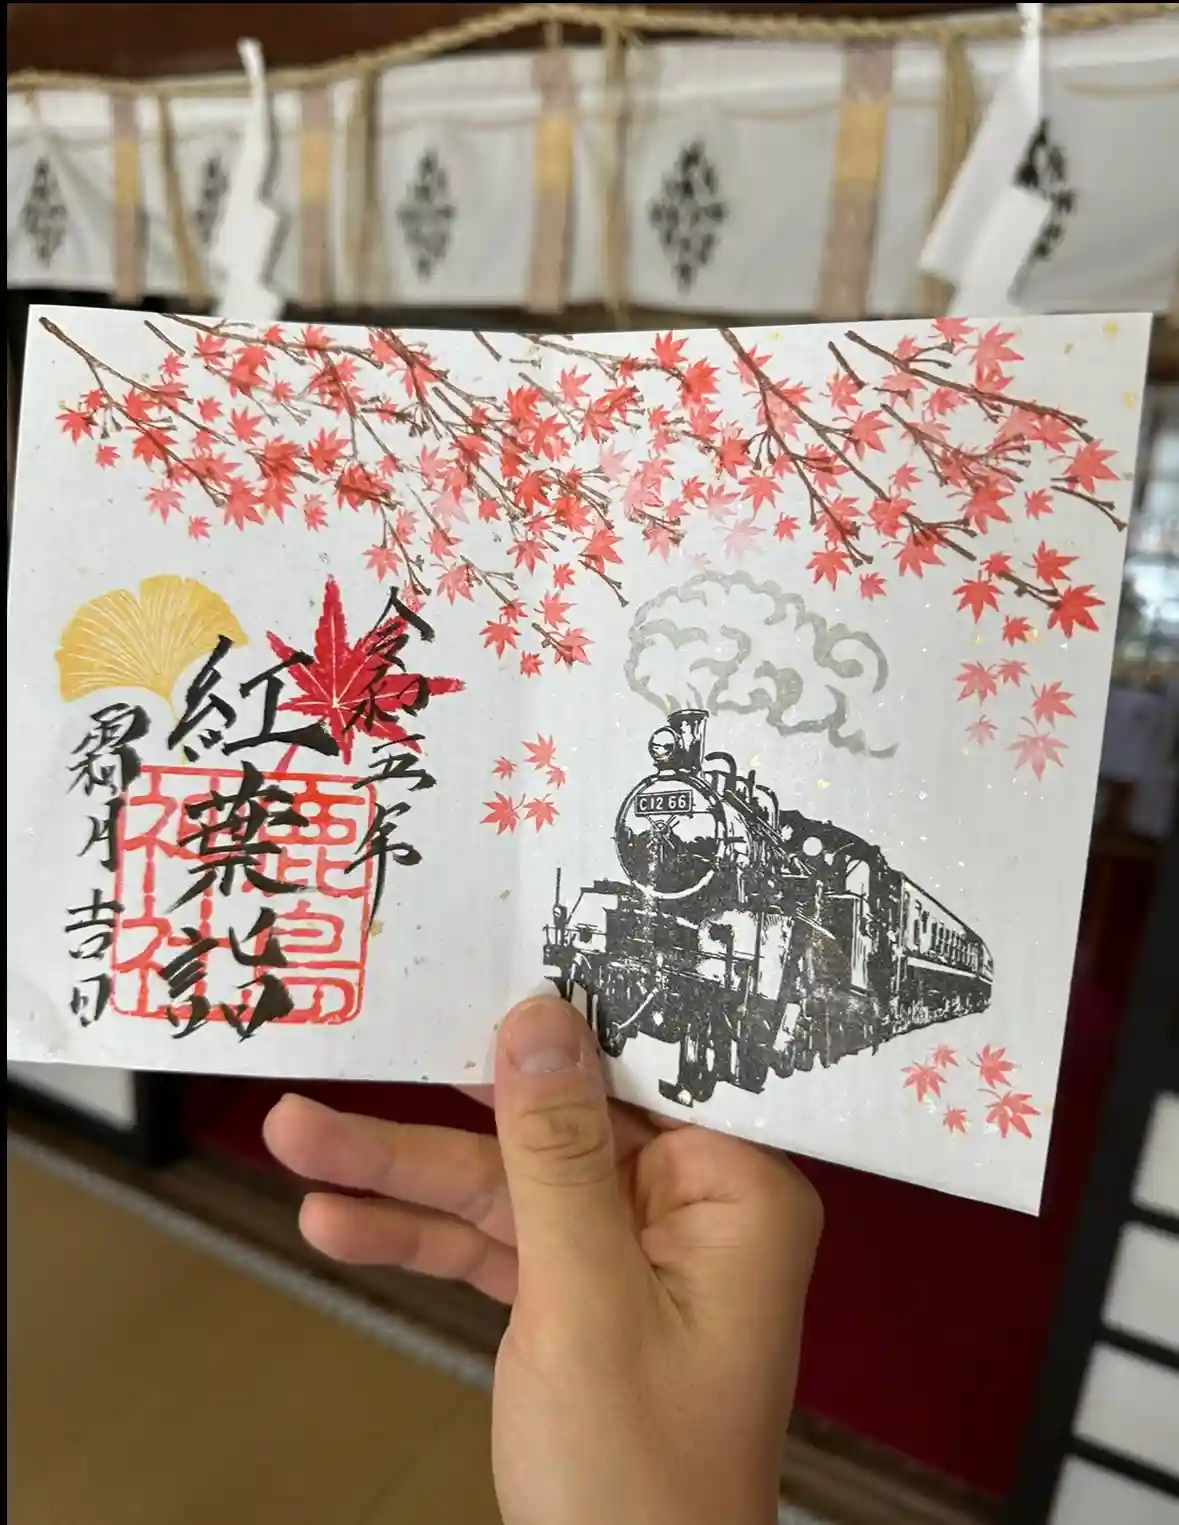 令和五年
紅葉詣
霜月吉日
鹿島
神社
C12 66